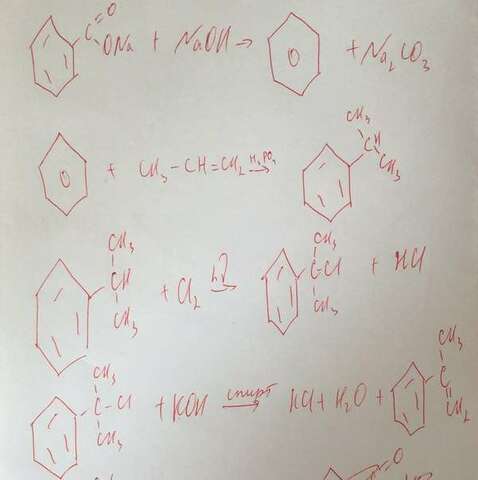 C O ONa + NaOH → O + Na2CO3
O + CH3-CH=CH2 H3PO4 → CH3 CH CH3
CH3 CH CH3 + Cl2 hν → CH3 C-Cl CH3 + HCl
CH3 C-Cl CH3 + KOH спирт → KCl + H2O + CH3 C CH2
O